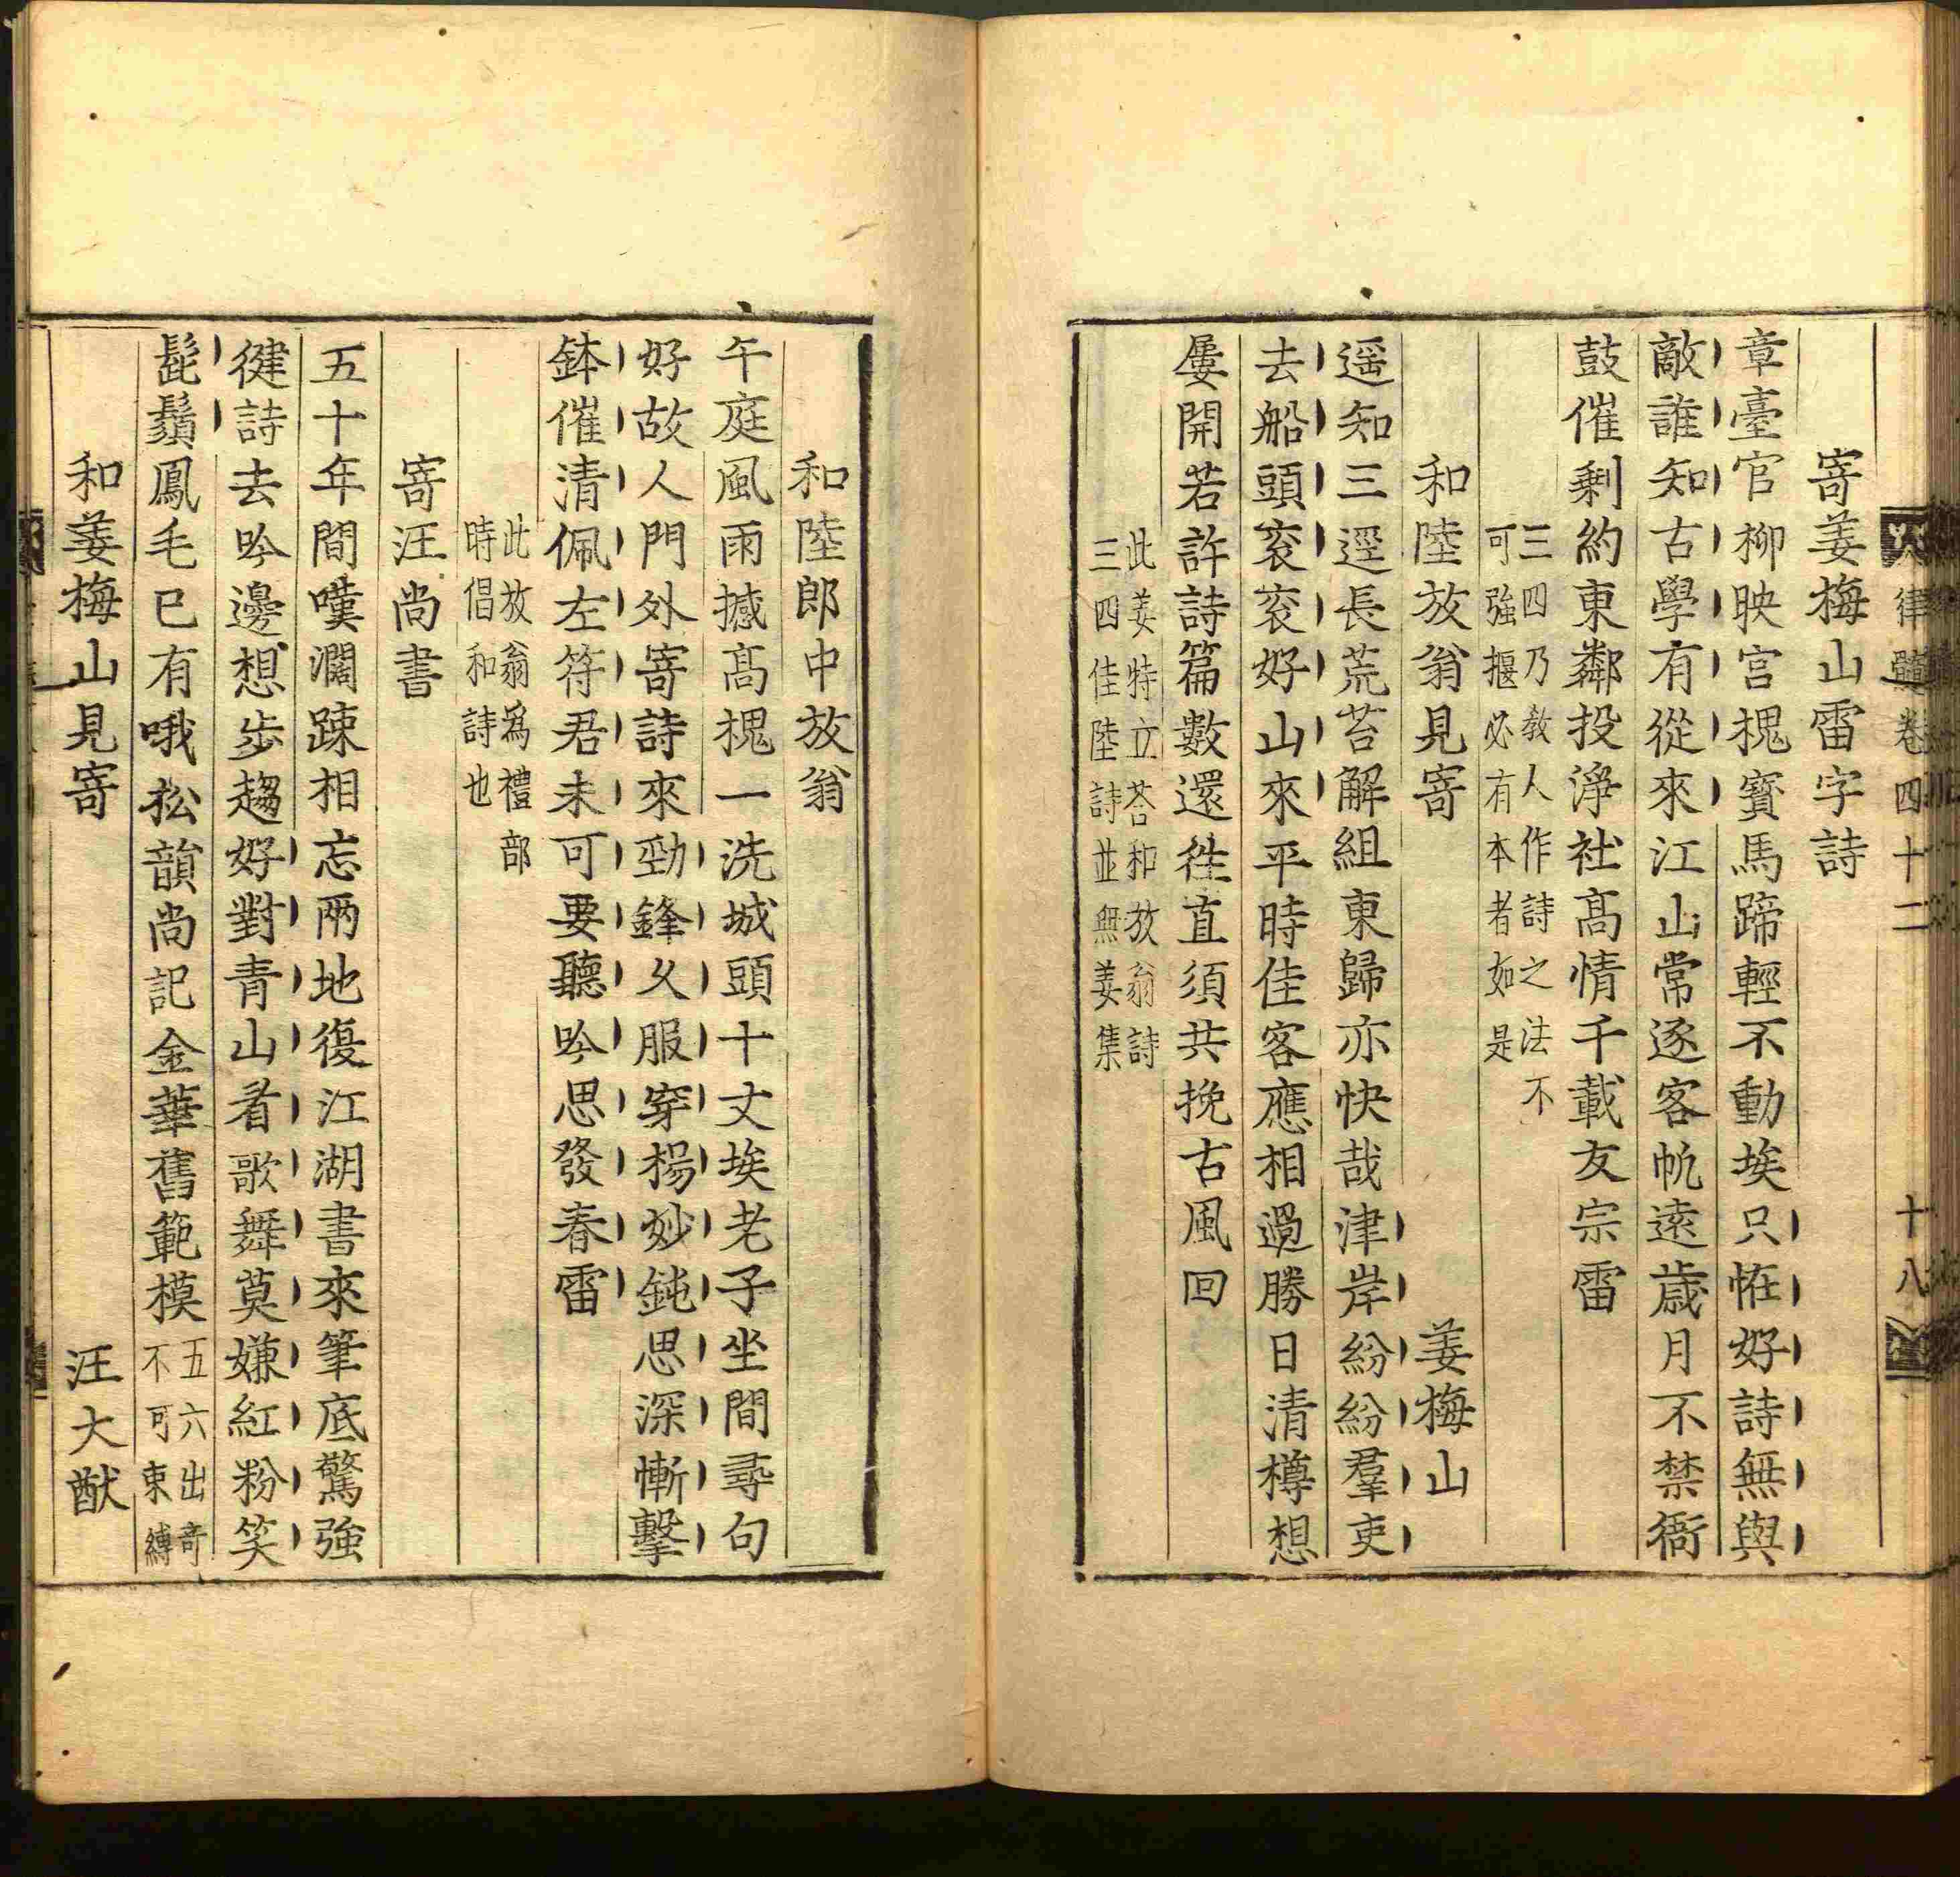 律髓卷四十二 十八
寄姜梅山雷字詩
章臺官柳映宫槐寳馬蹄輕不動埃只恠好詩無與
敵誰知古學有從來江山常逐客帆逺歳月不禁衙
鼓催剰約東鄰投淨社髙情千載友宗雷
三四乃教人作詩之法不
可強揠必有本者如是
和陸放翁見寄 姜梅山
遥知三逕長荒苔解組東歸亦快哉津岸紛紛羣吏
去船頭衮衮好山來平時佳客應相過勝日清樽想
屢開若許詩篇數還徃直須共挽古風回
此姜特立荅和放翁詩
三四佳陸詩並無姜集
和陸郎中放翁
午庭風雨撼髙槐一洗城頭十丈埃老子坐間尋句
好故人門外寄詩來勁鋒乆服穿楊妙鈍思深慚擊
鉢催清佩左符君未可要聽吟思發春雷
此放翁為禮部
時倡和詩也
寄汪尚書
五十年間嘆濶踈相忘兩地復江湖書來筆底驚強
健詩去吟邊想步趨好對青山看歌舞莫嫌紅粉笑
髭鬚鳳毛已有哦松韻尚記金華舊範模
五六出奇
不可束縛
和姜梅山見寄 汪大猷